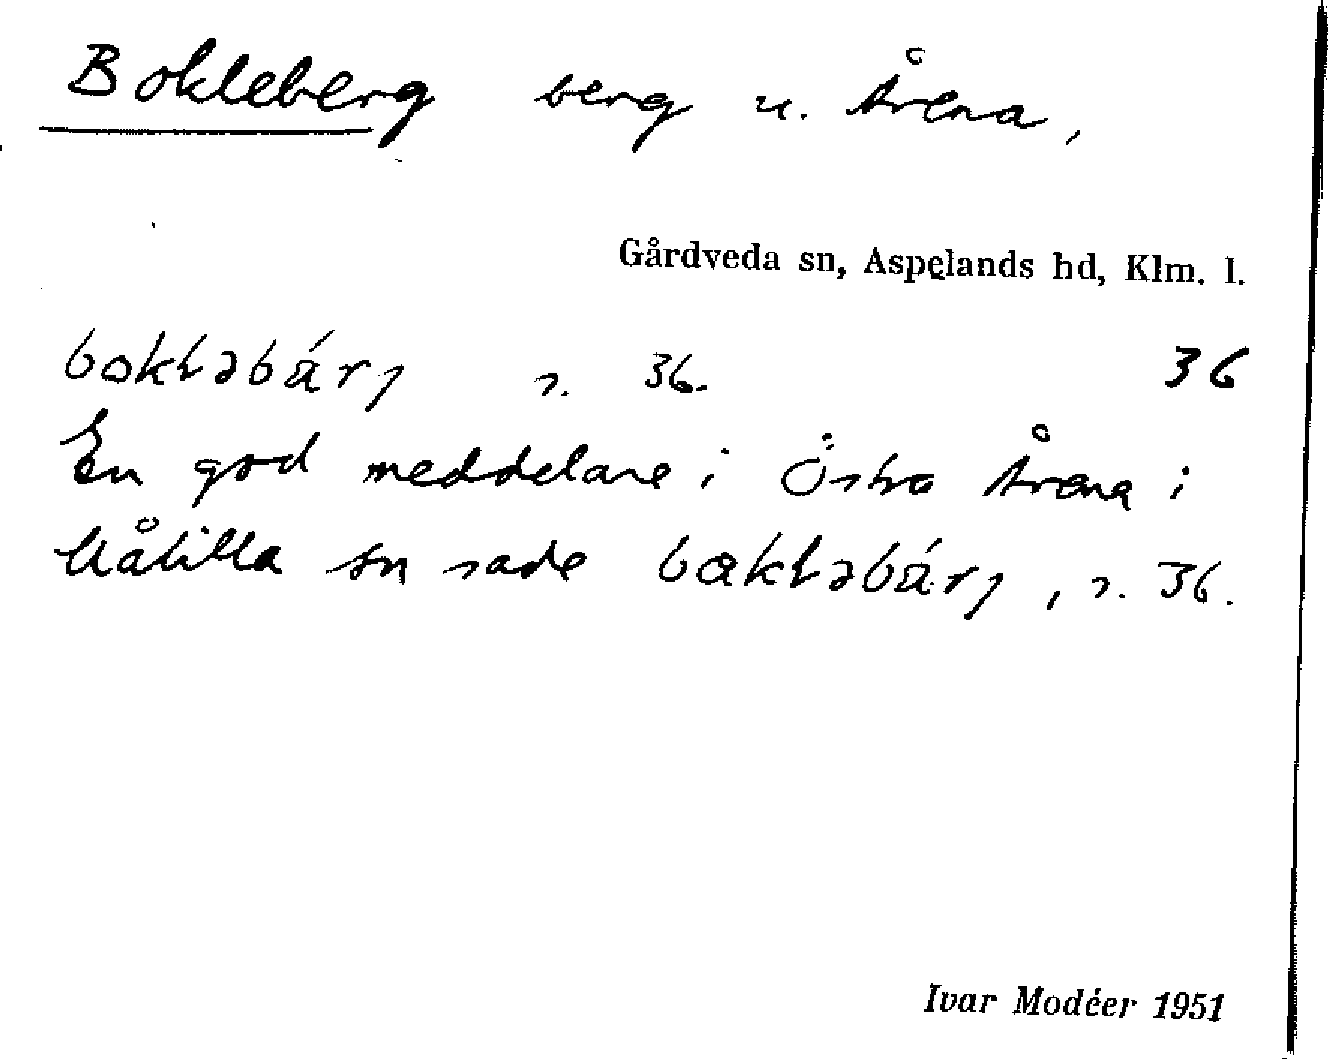 Bokleberg berg u. Årena,
Gårdveda sn, Aspelands hd, Klm. l.
bokləbárj s. 36. 36
En god meddelare i Östra Årena i
Målilla sn sade bɷkləbárj, s. 36.
Ivar Modéer 1951